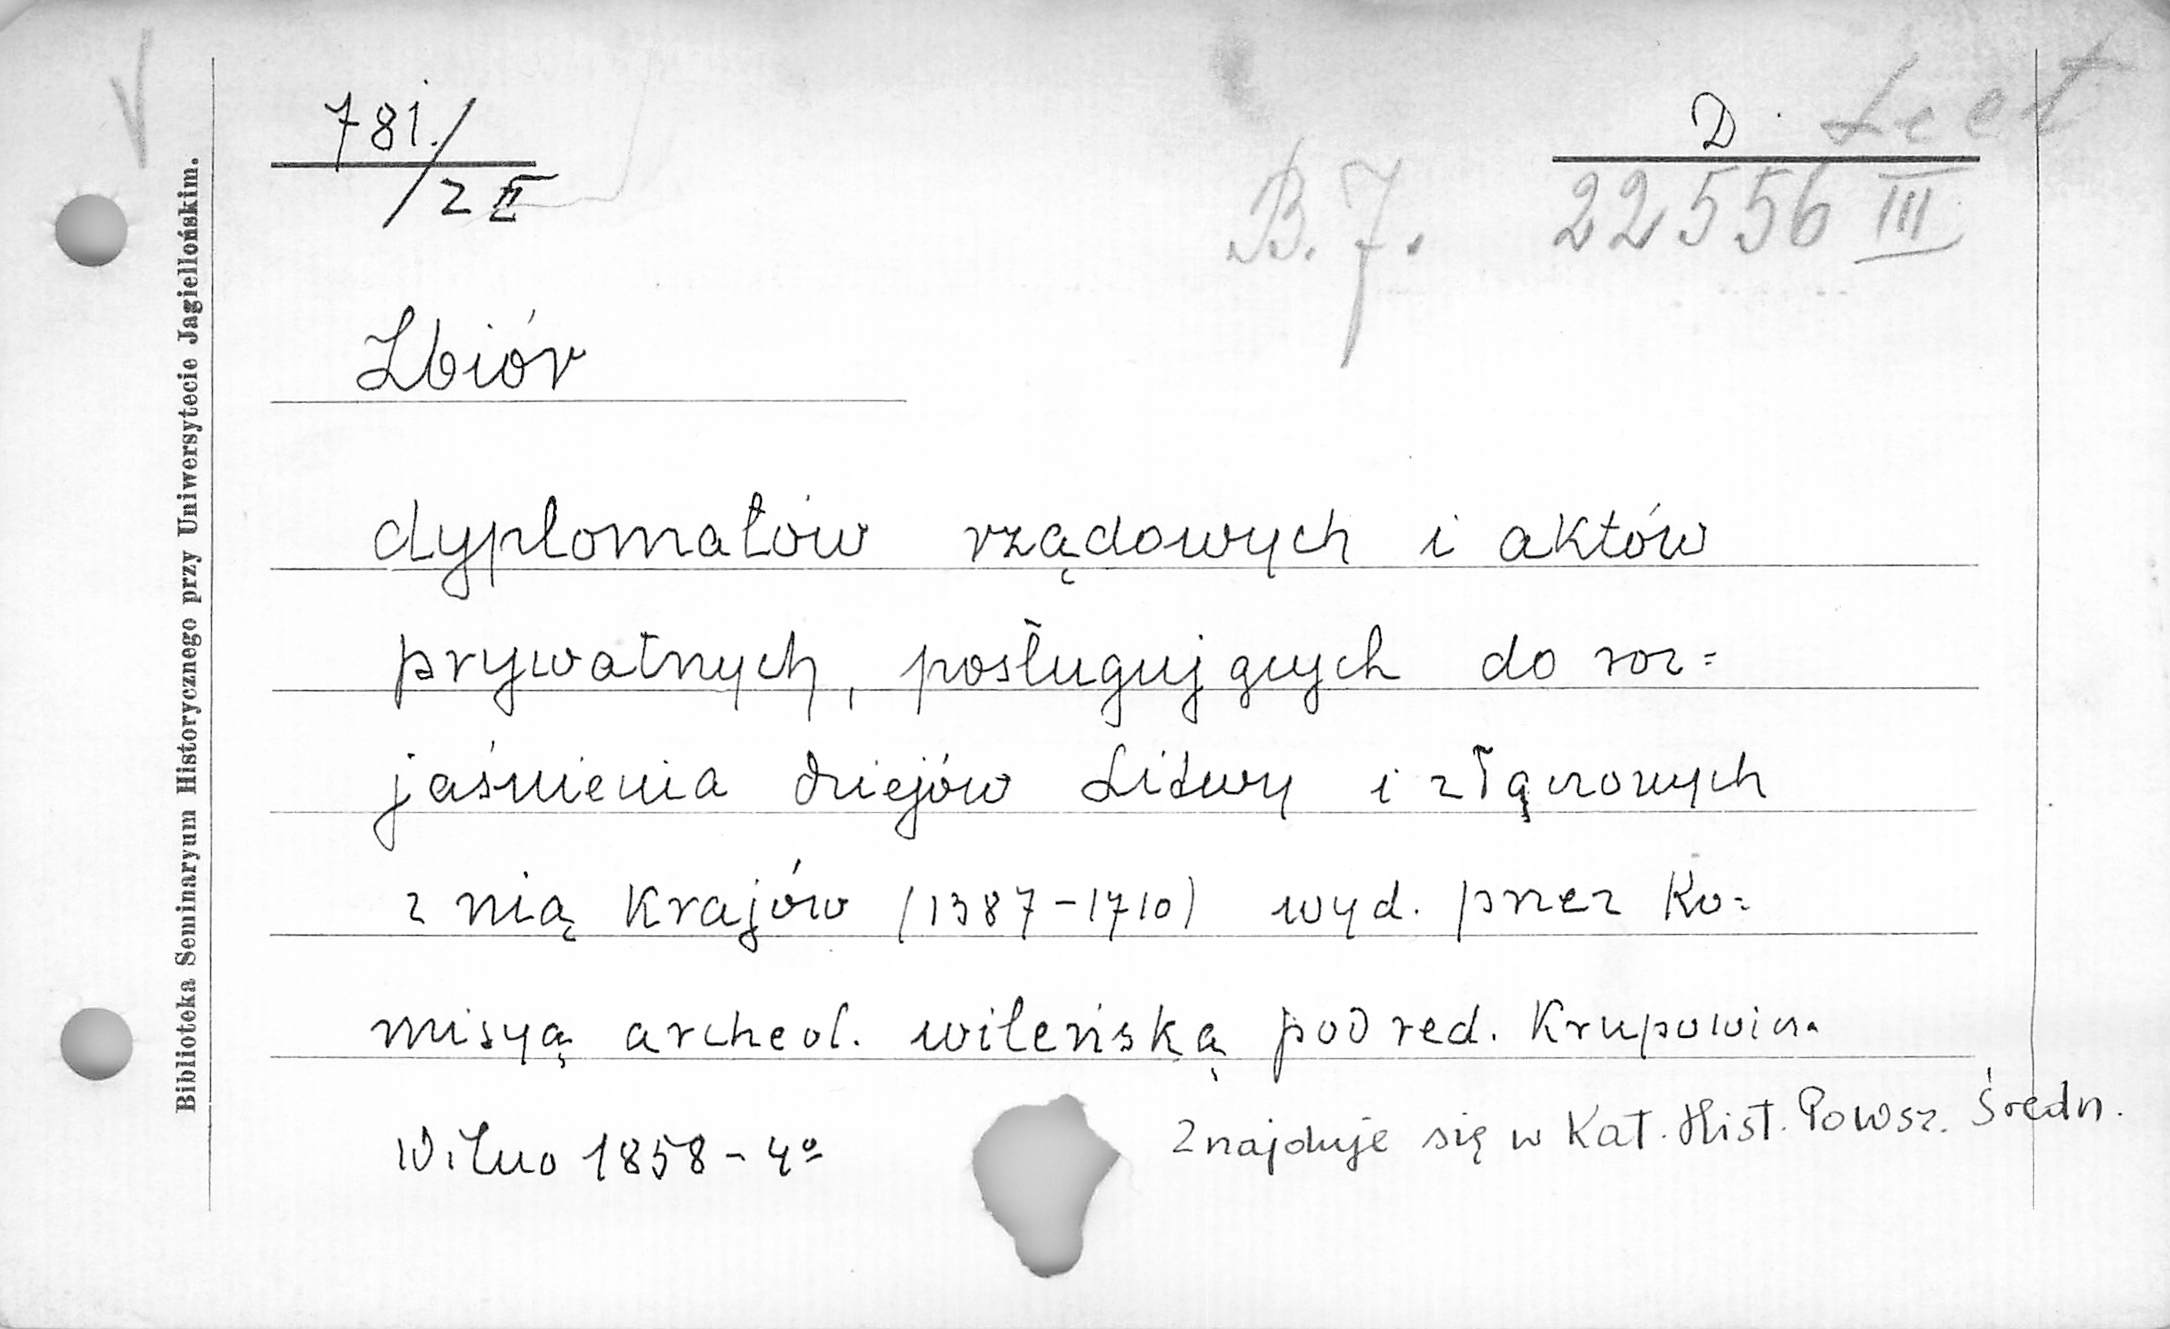 781./2 II
D.
B. 7.
22556 III
Zbiór
dyplomatów rządowych i aktów
prywatnych, posługujących do roz=
jaśnienia dziejów Litwy i złączonych
z nią krajów (1387-1710) wyd. przez Ko=
misyą archeol. wileńską pod red. Krupowicza
Wilno 1858 - 4º
Znajduje się w Kat. Hist. Powsz. Średn.
Biblioteka Seminaryum Historycznego przy Uniwersytecie Jagiellońskim.